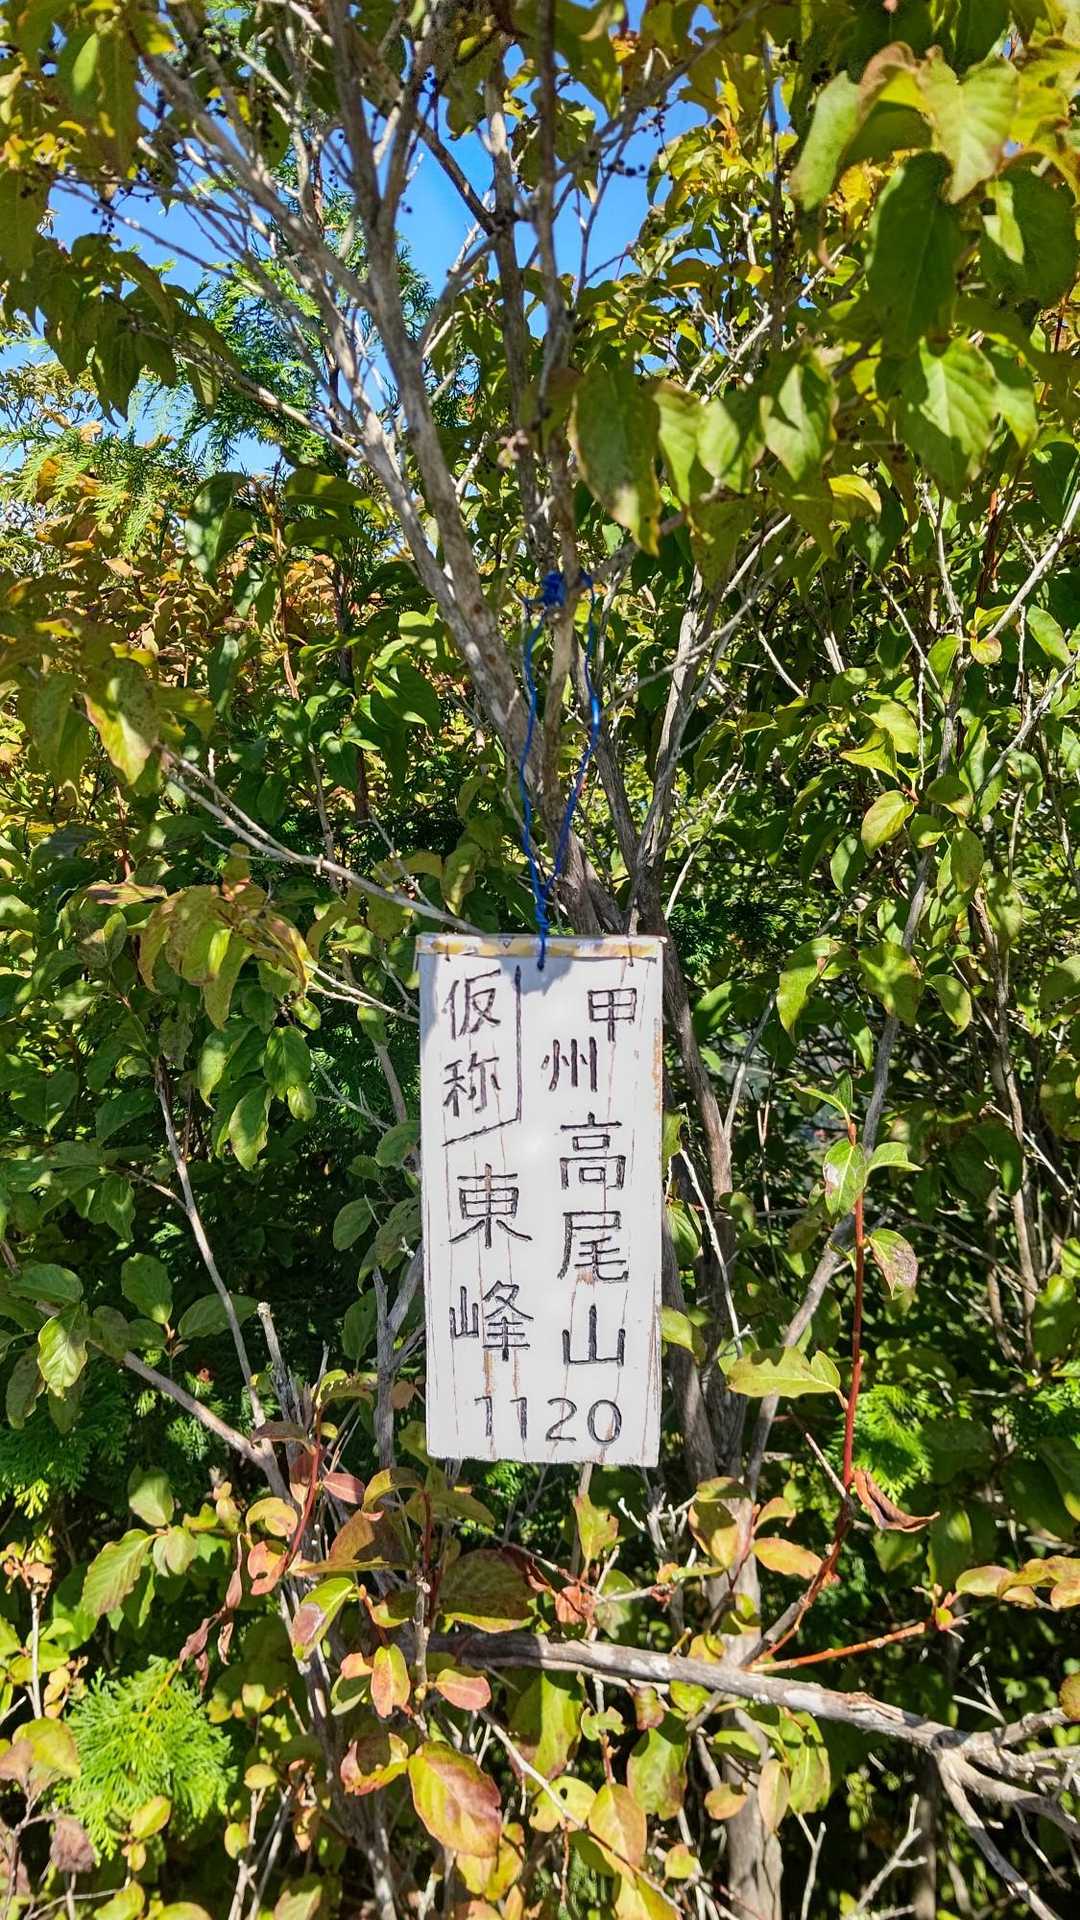 甲州高尾山
仮称
東峰
1120